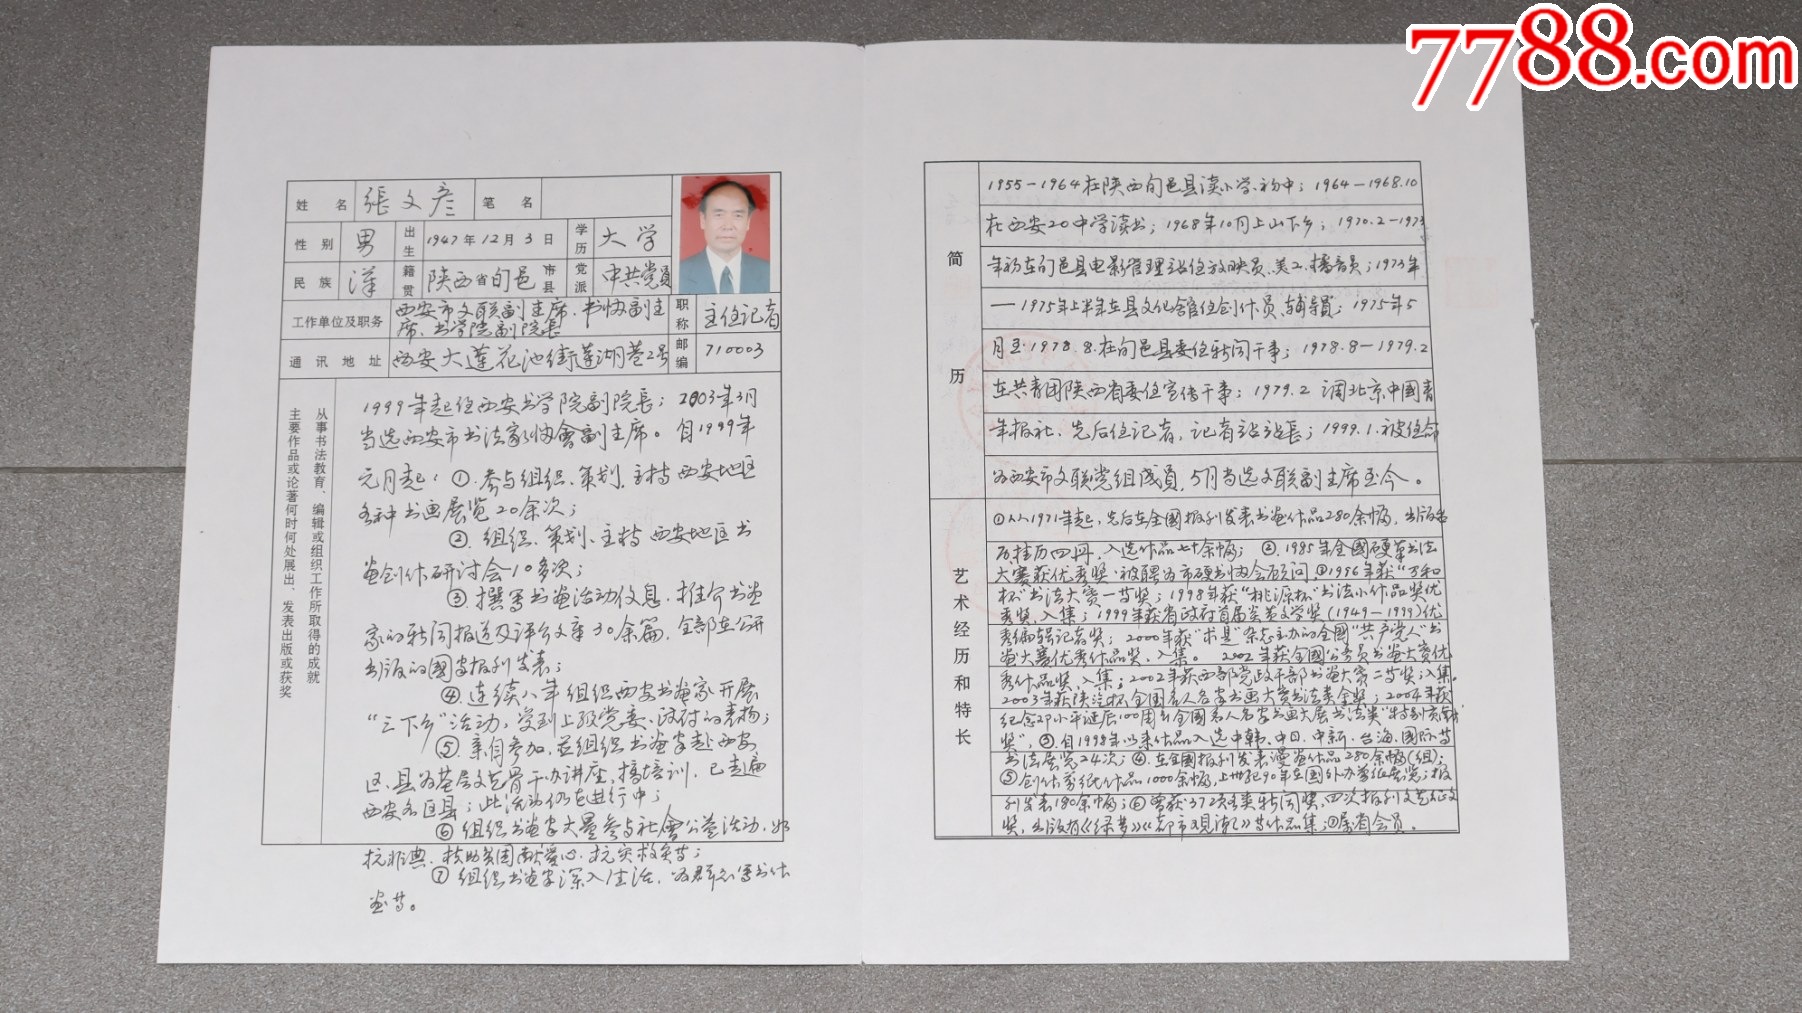 7788.com
姓 名 張文彦 笔 名
性 别 男 出生 1947年12月3日 学历 大学
民 族 漢 籍贯 陕西省旬邑市县 党派 中共党員
工作单位及职务 西安市文联副主席、书协副主席、书学院副院長 职称 主任记者
通 讯 地 址 西安大莲花池街莲湖巷2号 邮编 710003
从事书法教育、编辑或组织工作所取得的成就
主要作品或论著何时何处展出、发表出版或获奖
1999年起任西安书学院副院長；2003年3月
当选西安市书法家协會副主席。自1999年
元月起：①.参与组织、策划、主持西安地区
各种书画展览20余次；
②.组织、策划、主持西安地区书
画创作研讨会10多次；
③.撰写书画活动信息、推介书画
家的新闻报道及评介文章30余篇，全部在公开
出版的國家报刊发表；
④.连续八年组织西安书画家开展
“三下乡”活动，受到上级党委、政府的表扬；
⑤.亲自参加，并组织书画家赴西安
区、县为基层文艺骨干办讲座，搞培训，已走遍
西安各区县；此活动仍在进行中；
⑥组织书画家大量参与社會公益活动，如
抗非典、扶助贫困献爱心、抗灾救灾等；
⑦组织书画家深入生活，为群众写书作
画等。
简 历
1955－1964在陕西旬邑县读小学、初中；1964－1968.10
在西安20中学读书；1968年10月上山下乡；1970.2－1973
年初在旬邑县电影管理站任放映员、美工、播音员；1973年
－1975年上半年在县文化馆任创作员、辅导員；1975年5
月至1978.8.在旬邑县委任新闻干事；1978.8－1979.2
在共青团陕西省委任宣传干事；1979.2 调北京中國青
年报社，先后任记者，记者站站長；1999.1.被任命
为西安市文联党组成員，5月当选文联副主席至今。
艺术经历和特长
①从1971年起，先后在全國报刊发表书画作品280余幅，出版名
片挂历四冊，入选作品七十余幅；②.1985年全國硬笔书法
大赛获优秀奖、被聘为市硬书协会顾问，③1996年获“万和
杯”书法大赛一等奖；1998年获“桃源杯”书法小作品奖优
秀奖，入集；1999年获省政府首届炎黄文学奖(1949－1999)优
秀编辑记者奖；2000年获“求是”杂志主办的全國“共产党人”书
画大赛优秀作品奖，入集。2002年获全國公务员书画大赛优
秀作品奖，入集；2002年获西部党政干部书画大赛二等奖，入集。
2003年获陕汽杯全國名人名家书画大赛书法类金奖；2004年获
纪念邓小平诞辰100周年全國名人名家书画大展书法类“特别贡献
奖”，③.自1998年以来作品入选中韩、中日、中新、台海、國际等
书法展览24次；④.在全國报刊发表漫画作品280余幅(组)；
⑤创作剪纸作品1000余幅，上世纪90年在國外办剪纸展览；报
刊发表180余幅；⑥曾获372项各类新闻奖，四次报刊文艺征文
奖，出版有《绿梦》《都市观潮》等作品集；⑦属省会员。